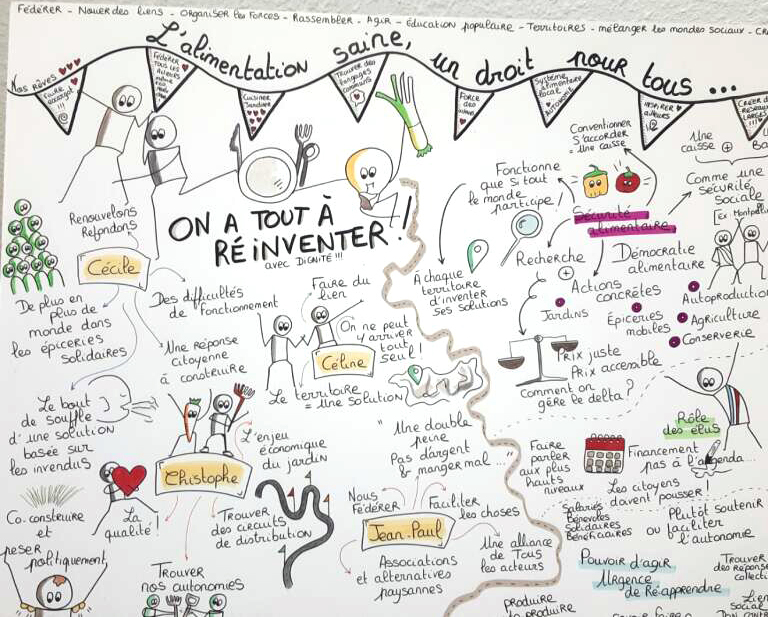 Fédérer - Nouer des liens - Organiser les forces - Rassembler - Agir - Éducation populaire - Territoires - mélanger les mondes sociaux -
L'alimentation saine, un droit pour tous ...
Nos rêves
Faire
accorgi
!!!
Fédérer
tous les
acteurs
Cuisiner
Jardiner
Trouver des
langages
communs
Force
des
Système
alimentaire
local
Autonomie
Inspirer
ailleurs
Créer d
réseaux
larges
!!!
ON A TOUT À
RÉINVENTER !
avec DIGNITÉ !!!
Renouvelons
Refondons
Cécile
De plus en
plus de
monde dans
les épiceries
solidaires
Des difficultés
de fonctionnement
Une réponse
citoyenne
à construire
Le bout
de souffle
d'une solution
basée sur
les invendus
Faire du
lien
On ne peut
y arriver
tout
seul !
Céline
Le territoire
= une solution
Christophe
L'enjeu
économique
du jardin
Co-construire
et
peser
politiquement
La
qualité !
Trouver
des circuits
de distribution
Trouver
nos autonomies
"Une double
peine
Pas d'argent
& manger mal ..."
Nous
Fédérer
Faciliter
les choses
Jean-Paul
Associations
et alternatives
paysannes
Une alliance
de Tous
les acteurs
Conventionner
S'accorder
= Une caisse
Une
caisse +
Fonctionne
que si tout
le monde
participe !
Sécurité
alimentaire
Comme une
sécurité
sociale
[Ex Montpellier
À chaque
territoire
d'inventer
ses solutions
Recherche
+
Actions
concrètes
Démocratie
alimentaire
Jardins
Épiceries
mobiles
Autoproduction
Agriculture
Conserverie
Prix juste
Prix accessible
Comment on
gère le delta ?
Rôle
des élus
Faire
parler
aux plus
hauts
niveaux
Financement
pas à l'agenda...
Les citoyens
doivent pousser !
Salariés
Bénévoles
Solidaires
Bénéficiaires
Plutôt soutenir
ou faciliter
l'autonomie
Pouvoir d'agir
Urgence
de Ré-apprendre
Trouver
des réponses
collecti
Lien
social
produire